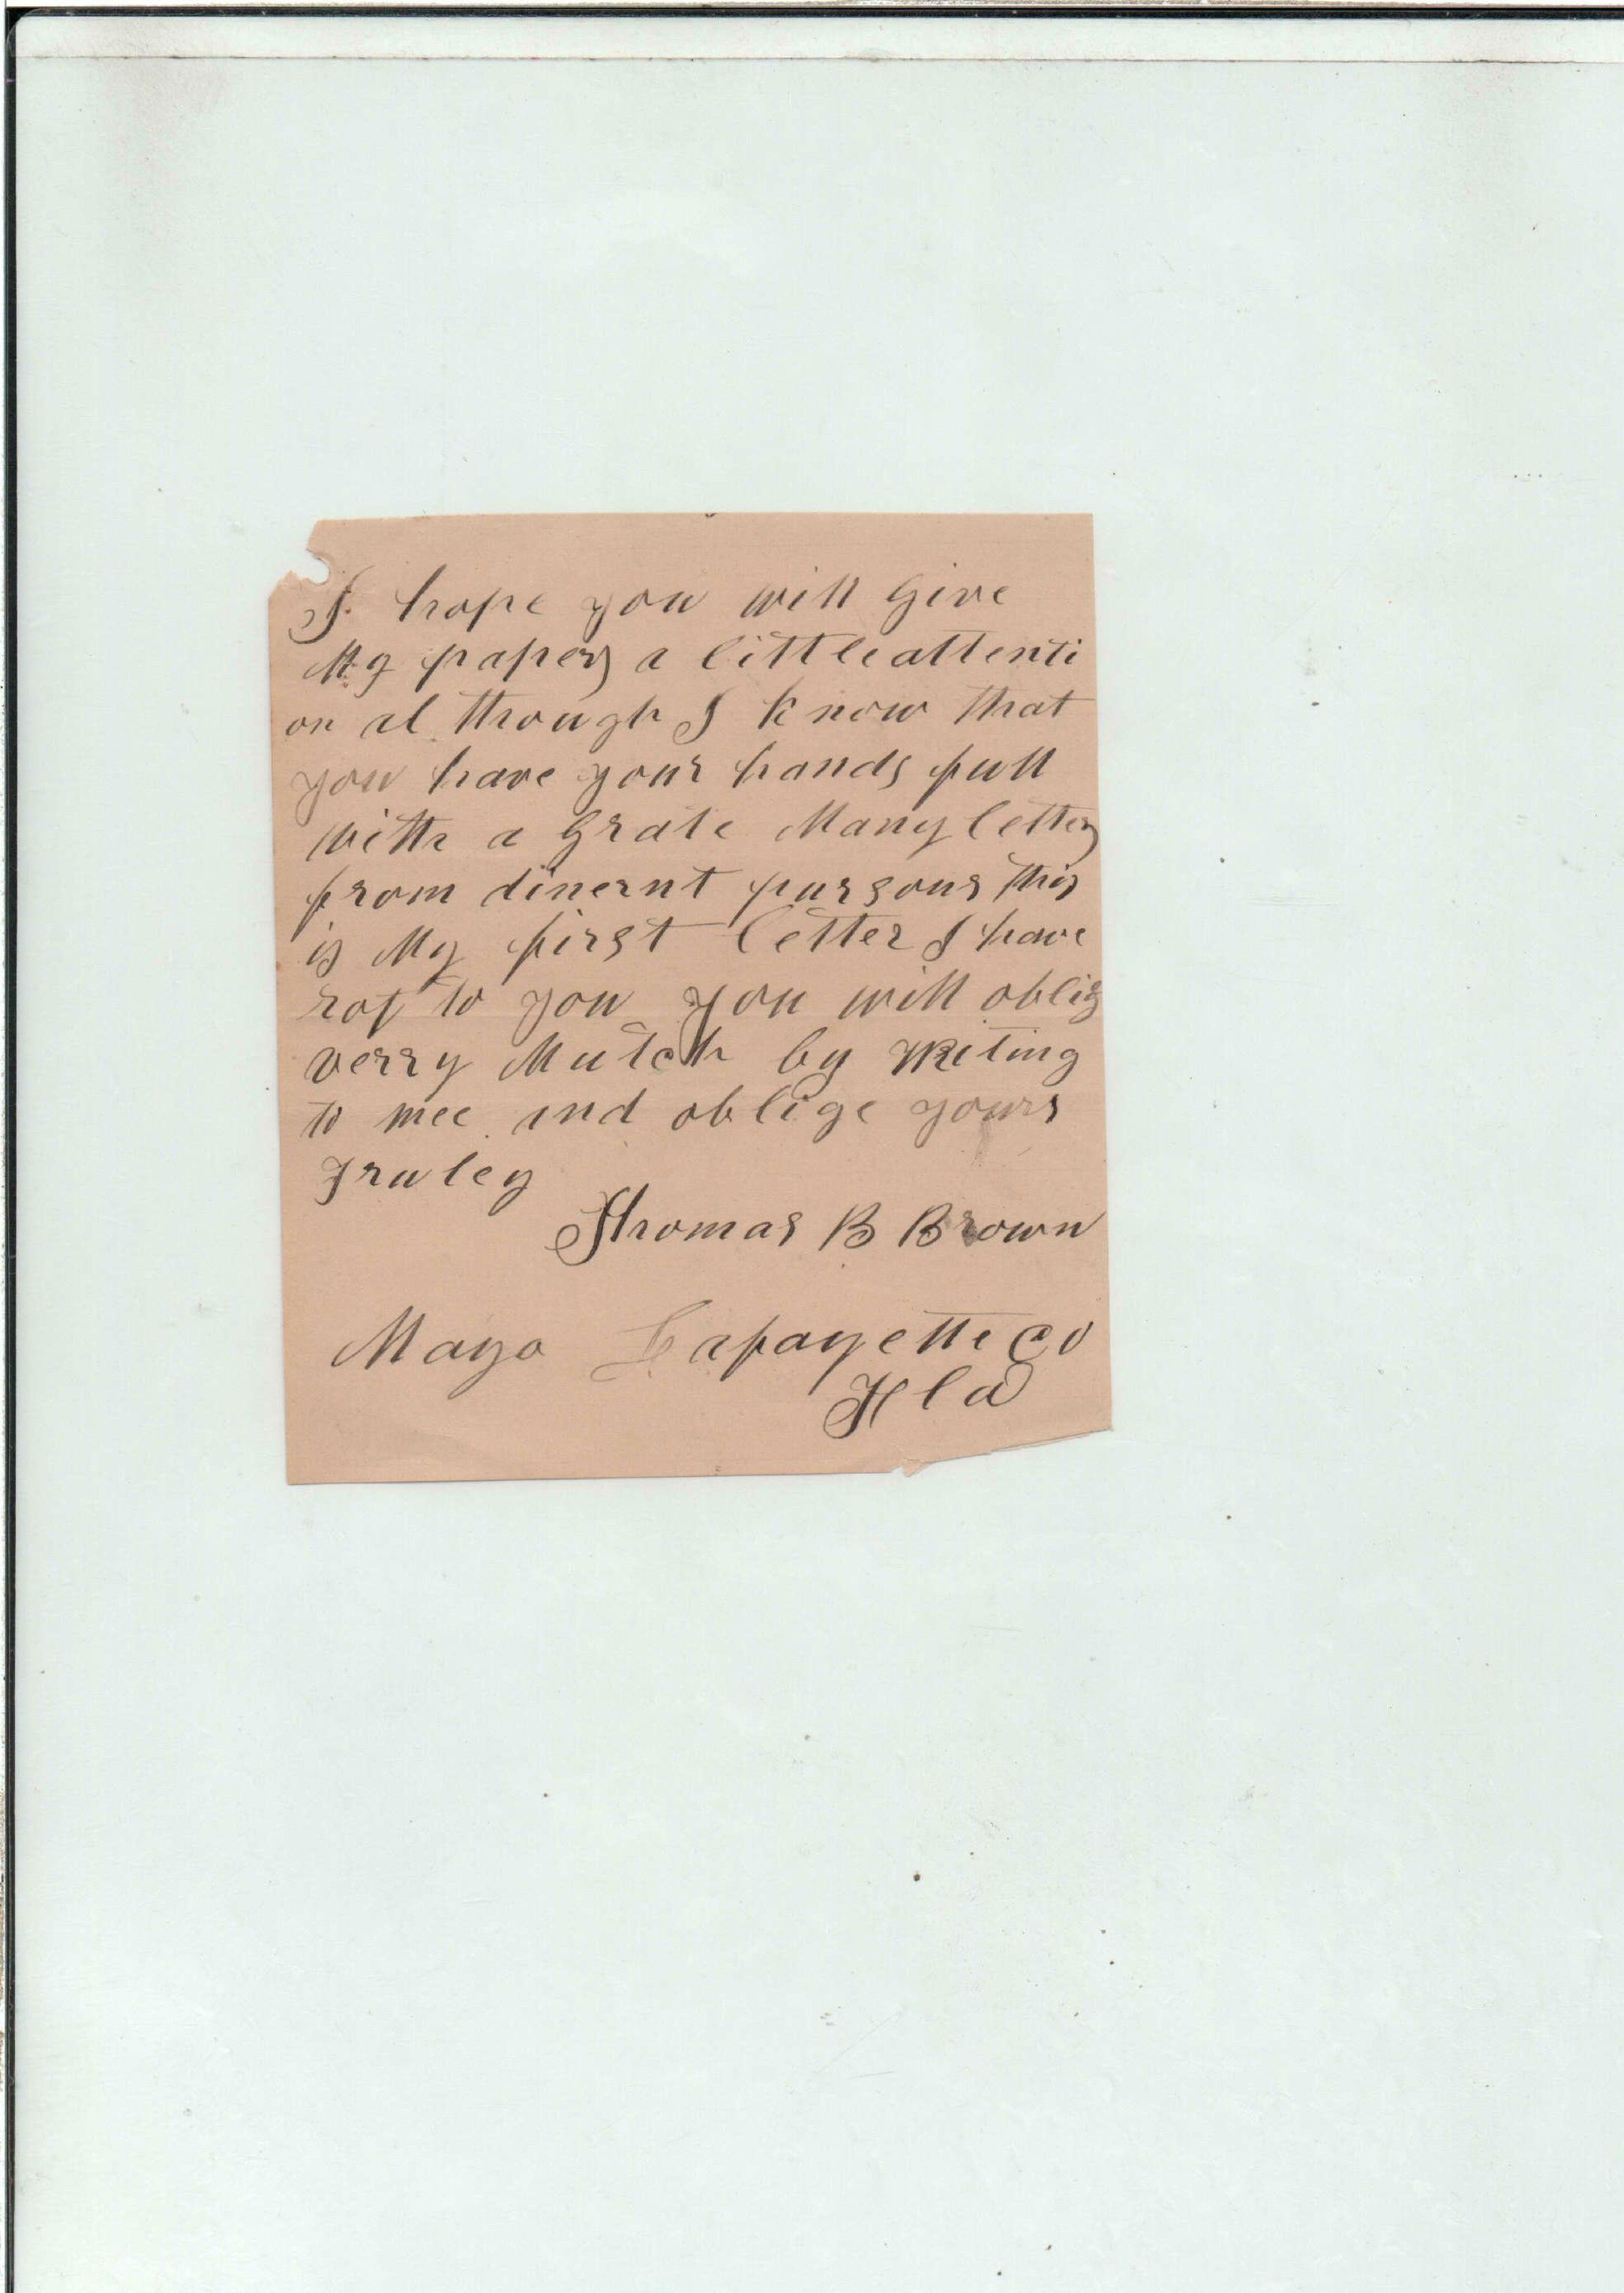 I hope you will Give
My papers a little attenti
on al though I know that
you have your hands full
with a Grate Many letters
from dinernt pursons this
is My first letter I have
rot to you you will oblig
verry Mutch by Writing
to mee and oblige yours
Truley
Thomas B Brown
Mayo Lafayette Co
Fla